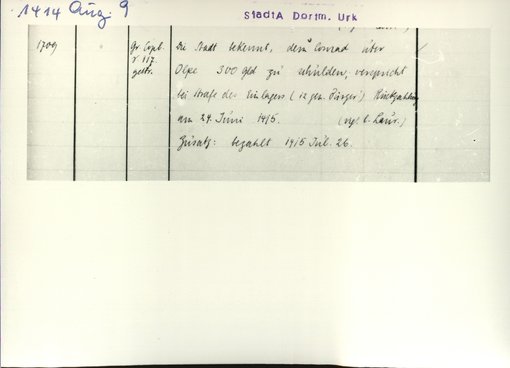 1414 Aug. 9
StadtA Dortm. Urk
1709
Gr. Copb.
V 117
gestr.
Die Stadt bekennt, dem Conrad über
Olpe 300 gld zu schulden, verspricht
bei Strafe des Einlagers (12 gen. Bürger) Rückzahlung
am 24. Juni 1415. (vig. b. Laur.)
Zusatz: bezahlt 1415 Jul. 26.